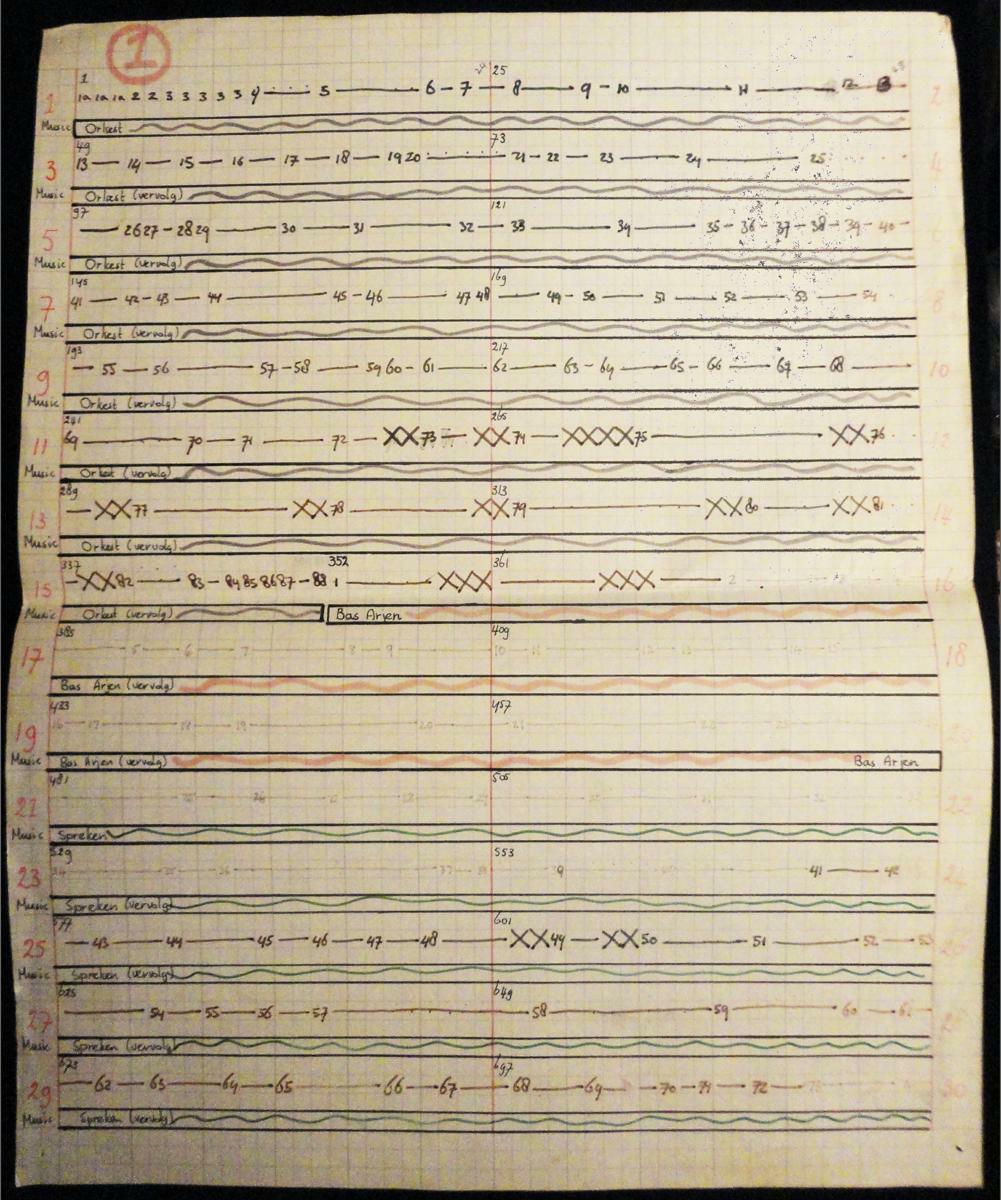 1
1 25
1 1a 1a 1a 2 2 3 3 3 3 3 4 5 6 7 8 9 10 11 12 2
Music Orkest
49 73
3 13 14 15 16 17 18 19 20 21 22 23 24 25 4
Music Orkest (vervolg)
97 121
5 26 27 28 29 30 31 32 33 34 35 36 37 38 39 40
Music Orkest (vervolg)
145 169
7 41 42 43 44 45 46 47 48 49 50 51 52 53 54 8
Music Orkest (vervolg)
193 217
9 55 56 57 58 59 60 61 62 63 64 65 66 67 68 10
Music Orkest (vervolg)
241 265
11 69 70 71 72 XX 73 XX 74 XXXX 75 XX 76 12
Music Orkest (vervolg)
289 313
13 XX 77 XX 78 XX 79 XX 80 XX 81 14
Music Orkest (vervolg)
337 352 361
15 XX 82 83 84 85 86 87 88 1 XXX XXX 2 16
Music Orkest (vervolg) Bas Arjen
385 409
17 5 6 7 8 9 10 11 12 13 14 15 18
Music Bas Arjen (vervolg)
433 457
19 16 17 18 19 20 21 20
Music Bas Arjen (vervolg) Bas Arjen
481 505
21 22
Music Spreken
529 553
23 41 42 24
Music Spreken (vervolg)
577 601
25 43 44 45 46 47 48 XX 49 XX 50 51 52 53
Music Spreken (vervolg)
625 649
27 54 55 56 57 58 59 60 61
Music Spreken (vervolg)
673 697
29 62 63 64 65 66 67 68 69 70 71 72 30
Music Spreken (vervolg)